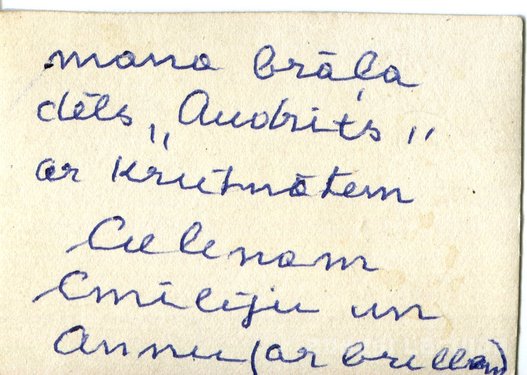 mana brāļa
dēls „Andrits"
ar Krustmātem
Emīliju un
Annu (ar brillēm)